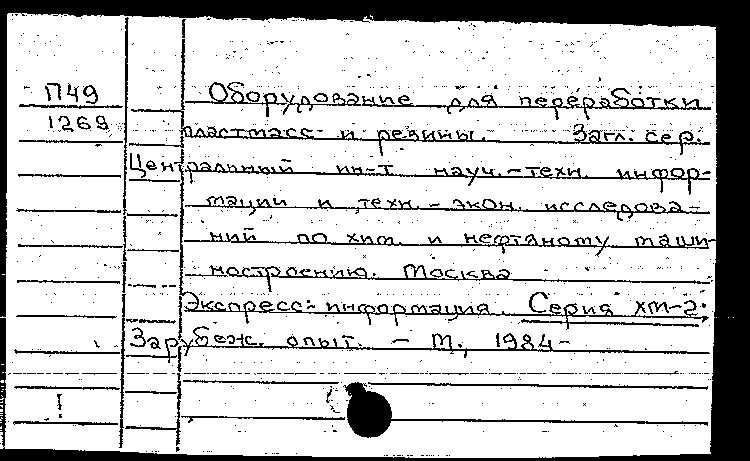 П49
1269
Оборудование для переработки
пластмасс и резины. Загл. сер.
Центральный ин-т науч.-техн. инфор-
мации и техн.-экон. исследова-
ний по хим. и нефтяному маши-
ностроению. Москва
Экспресс-информация. Серия хм-2.
Зарубеж. опыт. - М., 1984-
!